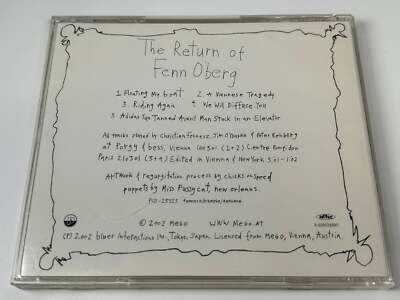 The Return of
Fenn O'berg
1 Floating My boat 2. A Viennese Tragedy
3. Riding Again 4. We Will Diffuse You
All tracks played by Christian Fennesz, Jim O'Rourke & Peter Rehberg
at Porgy & bess, Vienna 100301 (1+2) Centre Pompidou
Paris 210301 (3+4) Edited in Vienna & New York
Artwork & regurgitation process by chicks on speed
poppets by Miss Pussycat, new orleans.
© 2002 MEGO WWW MEGO.AT
(P) 2002 blues interactions Inc., Tokyo, Japan. Licensed from MEGO, Vienna, Austria.